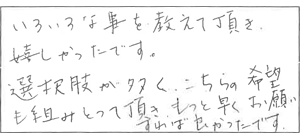 いろいろな事を教えて頂き、
嬉しかったです。
選択肢が多く、こちらの希望
も組みとって頂き、もっと早くお願い
すれば良かったです。